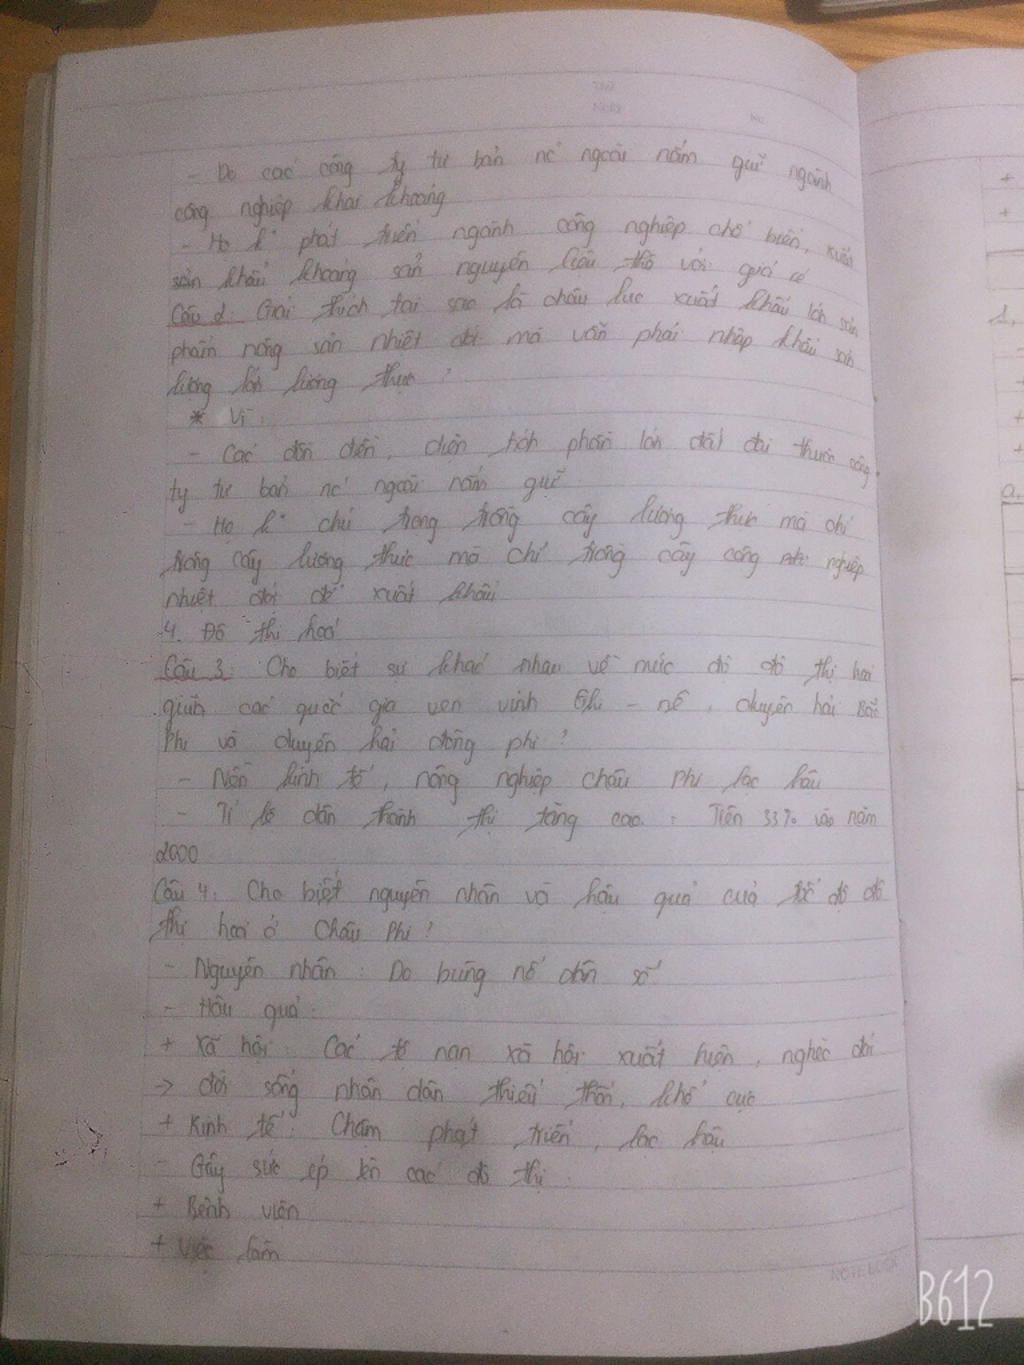 - Do các công ty tư bản nc' ngoài nắm giữ ngành
công nghiệp khai khoáng
- Họ k° phát triển ngành công nghiệp chế biến, xuất
sản khẩu khoáng sản nguyên liệu thô với giá rẻ
Câu 2: Giải thích tại sao là châu lục xuất khẩu lớn sản
phẩm nông sản nhiệt đới mà vẫn phải nhập khẩu sản
lượng lớn lương thực?
* Vì:
- Các đồn điền, diện tích phần lớn đất đai thuộc công
ty tư bản nc' ngoài nắm giữ
- Họ k° chú trọng trồng cây lương thực mà chỉ
trồng cây lương thực mà chỉ trồng cây công nghiệp
nhiệt đới để xuất khẩu
4. Đô thị hoá
Câu 3: Cho biết sự khác nhau về mức độ đô thị hoá
giữa các quốc gia ven vịnh Ghi - nê, duyên hải Bắc
Phi và duyên hải đông phi?
- Nền kinh tế, nông nghiệp châu Phi lạc hậu
- Tỉ lệ dân thành thị tăng cao: Trên 33% vào năm
2000
Câu 4: Cho biết nguyên nhân và hậu quả của tốc độ đô
thị hoá ở Châu Phi?
- Nguyên nhân: Do bùng nổ dân số
- Hậu quả:
+ Xã hội: Các tệ nạn xã hội xuất hiện, nghèo đói
→ đời sống nhân dân thiếu thốn, khổ cực
+ Kinh tế: Chậm phát triển, lạc hậu
- Gây sức ép lên các đô thị:
+ Bệnh viện
+ Việc làm
NOTEBOOK
B612
+
+
1,
-
-
+
+
a,